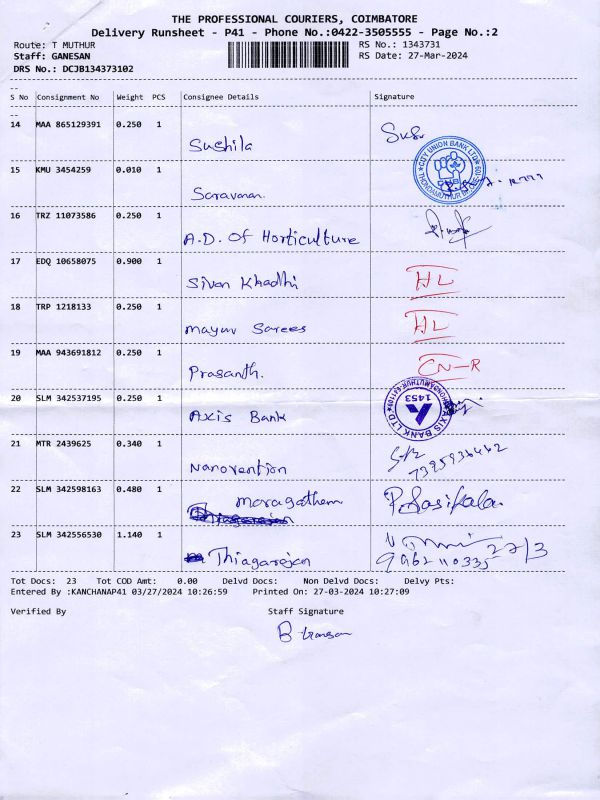 THE PROFESSIONAL COURIERS, COIMBATORE
Delivery Runsheet - P41 - Phone No.:0422-3505555 - Page No.:2
Route: T MUTHUR RS No.: 1343731
Staff: GANESAN RS Date: 27-Mar-2024
DRS No.: DCJB134373102
S No Consignment No Weight PCS Consignee Details Signature
14 MAA 865129391 0.250 1
Sushila Susi
15 KMU 3454259 0.010 1
CITY UNION BANK LTD
Saravanan.
16 TRZ 11073586 0.250 1
A.D. Of Horticulture
17 EDQ 10658075 0.900 1
Sivan Khadhi HL
18 TRP 1218133 0.250 1
Mayuv Sarees HL
19 MAA 943691812 0.250 1
Prasanth. CN-R
20 SLM 342537195 0.250 1
Axis Bank
AXIS BANK LTD
1453
21 MTR 2439625 0.340 1
Nanovention
7395936462
22 SLM 342598163 0.480 1
Maragatham P. Sasikala.
23 SLM 342556530 1.140 1
Thiagarajan 27/3
9962110335
Tot Docs: 23 Tot COD Amt: 0.00 Delvd Docs: Non Delvd Docs: Delvy Pts:
Entered By :KANCHANAP41 03/27/2024 10:26:59 Printed On: 27-03-2024 10:27:09
Verified By Staff Signature